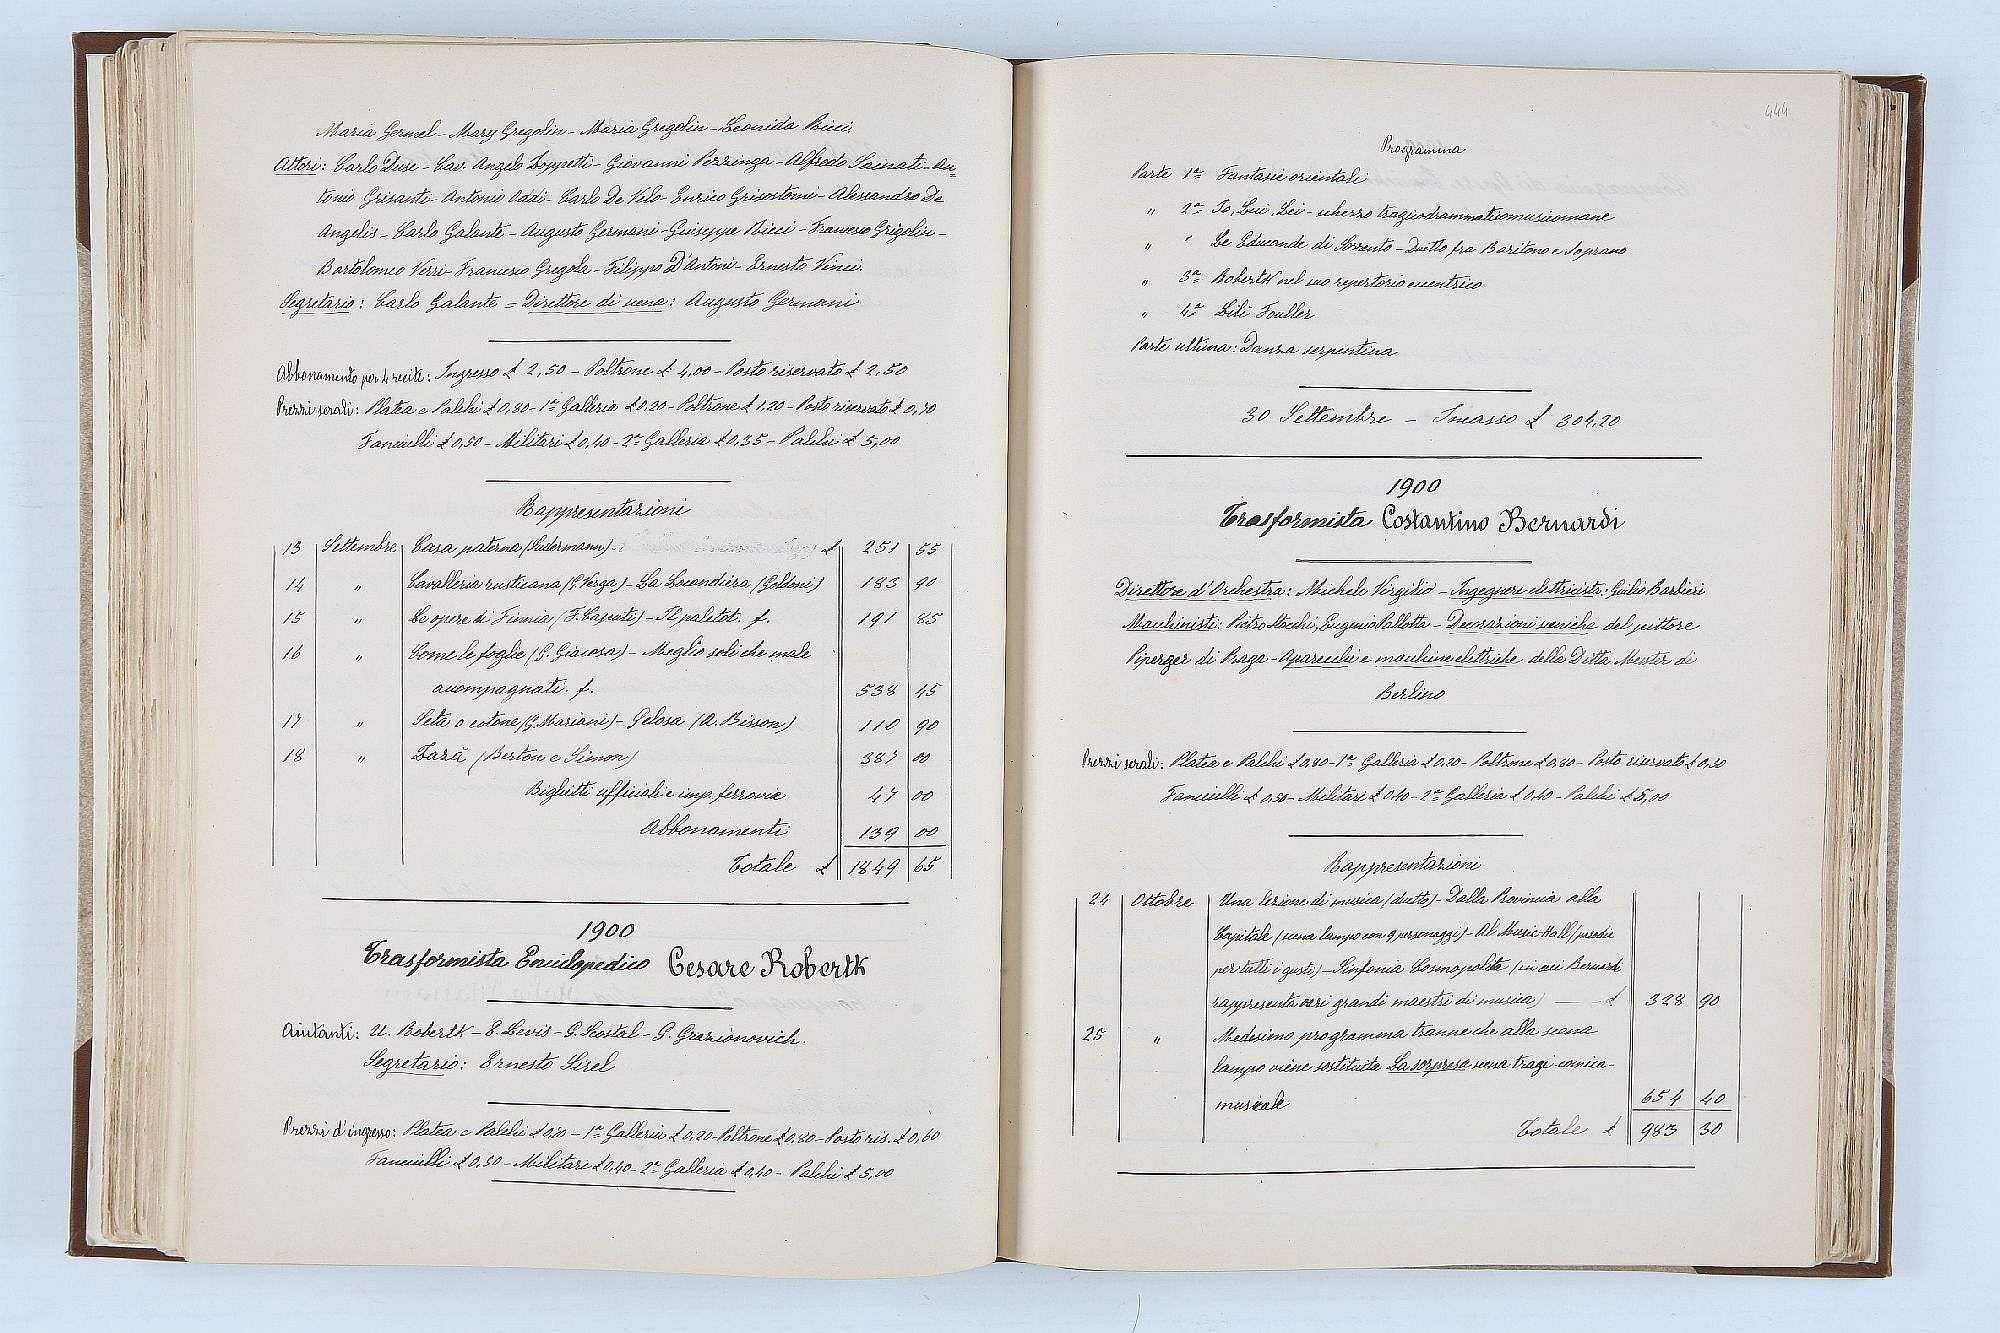 Maria Germel - Mary Gregolin - Maria Gregolin - Leonida Ricci.
Attori: Carlo Duse - Cav. Angelo Zoppetti - Giovanni Pezzinga - Alfredo Sainati - An=
tonio Grisanti - Antonio Oddi - Carlo De Velo - Enrico Grisostomi - Alessandro De
Angelis - Carlo Galante - Augusto Germani - Giuseppe Ricci - Francesco Grigolin -
Bartolomeo Verri - Francesco Gregola - Filippo D'Antoni - Ernesto Vinci.
Segretario: Carlo Galante = Direttore di scena: Augusto Germani
Abbonamento per 4 recite: Ingresso £ 2,50 - Poltrone £ 4,00 - Posto riservato £ 2,50
Prezzi serali: Platea e Palchi £ 0,80 - 1ª Galleria £ 0,20 - Poltrone £ 1,20 - Posto riservato £ 0,70
Fanciulli £ 0,50 - Militari £ 0,40 - 2ª Galleria £ 0,35 - Palchi £ 5,00
Rappresentazioni
13 Settembre Casa paterna (Sudermann) - £ 251 55
14 " Cavalleria rusticana (G. Verga) - La Locandiera (Goldoni) 183 90
15 " Le opere di Finnia (F. Caputi) - Il paletot. f. 191 85
16 " Come le foglie (G. Giacosa) - Meglio soli che male
accompagnati. f. 538 45
17 " Seta o cotone (G. Mariani) - Gelosa (A. Bisson) 110 90
18 " Zazà (Berton e Simon) 387 00
Biglietti ufficiali e imp. ferrovia 47 00
Abbonamenti 139 00
Totale £ 1849 65
1900
Trasformista Enciclopedico Cesare Robertk
Aiutanti: U. Robertk - E. Levis - G. Kostal - G. Grazionovich.
Segretario: Ernesto Sisel
Prezzi d'ingresso: Platea e Palchi £ 0,80 - 1ª Galleria £ 0,20 - Poltrone £ 0,80 - Posto ris. £ 0,60
Fanciulli £ 0,50 - Militari £ 0,40 - 2ª Galleria £ 0,40 - Palchi £ 5,00
444
Programma
Parte 1ª Fantasie orientali
" 2ª Io, Lui, Lei - scherzo tragicodrammaticomusicomane
" " Le Educande di Sorrento - Duetto fra Baritono e Soprano
" 3ª Robertk nel suo repertorio eccentrico
" 4ª Lili Fouller
Parte ultima: Danza serpentina
30 Settembre - Incasso £ 304,20
1900
Trasformista Costantino Bernardi
Direttore d'Orchestra: Michele Virgilio - Ingegnere elettricista: Giulio Barbieri
Macchinisti: Pietro Stocchi, Eugenio Pallotta - Decorazioni sceniche del pittore
Piperger di Praga - Aparecchi e macchine elettriche della Ditta Mester di
Berlino
Prezzi serali: Platea e Palchi £ 0,80 - 1ª Galleria £ 0,20 - Poltrone £ 0,80 - Posto riservato £ 0,50
Fanciulli £ 0,50 - Militari £ 0,40 - 2ª Galleria £ 0,40 - Palchi £ 5,00
Rappresentazioni
24 Ottobre Una lezione di musica (duetto) - Dalla Provincia alla
Capitale (scena lampo con 9 personaggi) - Al Music-Hall (parodie
per tutti i gusti) - Sinfonia Cosmopolita (in cui Bernardi
rappresenta veri grandi maestri di musica) - £ 328 90
25 " Medesimo programma tranne che alla scena
lampo viene sostituita La sorpresa scena tragi-comica-
musicale 654 40
Totale £ 983 30